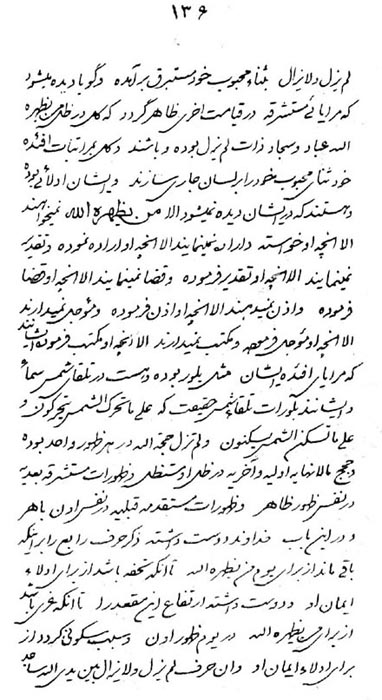 ۱۳۶
لم یزل و لایزال بثناء محبوب خود مستبرق برآمده و گویا دیده میشود
که مرایائی مستشرقه در قیامت اخری ظاهر گردد که کل در ظل من یظهره
الله عباد و سجاد ذات لم یزل بوده و باشند و کل بمراتبات افئده
خود ثناء محبوب خود را بر لسان جاری سازند و ایشان ادلائی بوده
و هستند که در ایشان دیده نمیشود الا من یظهره الله نمیخواهند
الا آنچه او خواسته و اراده نمینمایند الا آنچه او اراده نموده و تقدیر
نمینمایند الا آنچه او تقدیر فرموده و قضا نمینمایند الا آنچه او قضا
فرموده و اذن نمیدهند الا آنچه او اذن فرموده و مؤجل نمیدارند
الا آنچه او مؤجل فرموده و مکتب نمیدارند الا آنچه او مکتب فرموده ایشانند
که مرایای افئده ایشان مثل بلور بوده و هست در تلقاء شمس سماء
و ایشانند بلورات تلقاء شمس حقیقت که علی ما تتحرک الشمس یتحرکون و
علی ما تسکن الشمس یسکنون و لم تزل حجة الله در هر ظهور واحد بوده
و حجج بالانهایه اولیه و آخریه در ظل او مستظل و ظهورات مستشرقه بعدیه
در نفس ظهور ظاهر و ظهورات مستقدمه قبلیه در نفس اون باهر
و در این باب خداوند دوست داشته ذکر حرف رابع را بر اینکه
باقی ماند از برای یوم من یظهره الله تا آنکه تحفه باشد از برای ادلاء
ایمان او و دوست داشته ارتفاع این مقصد را تا آنکه عزی باشد
از برای من یظهره الله در یوم ظهور اون و سبب سکونی گردد از
برای ادلاء ایمان او و ان حرف لم یزل و لایزال بین یدی الله ساجد